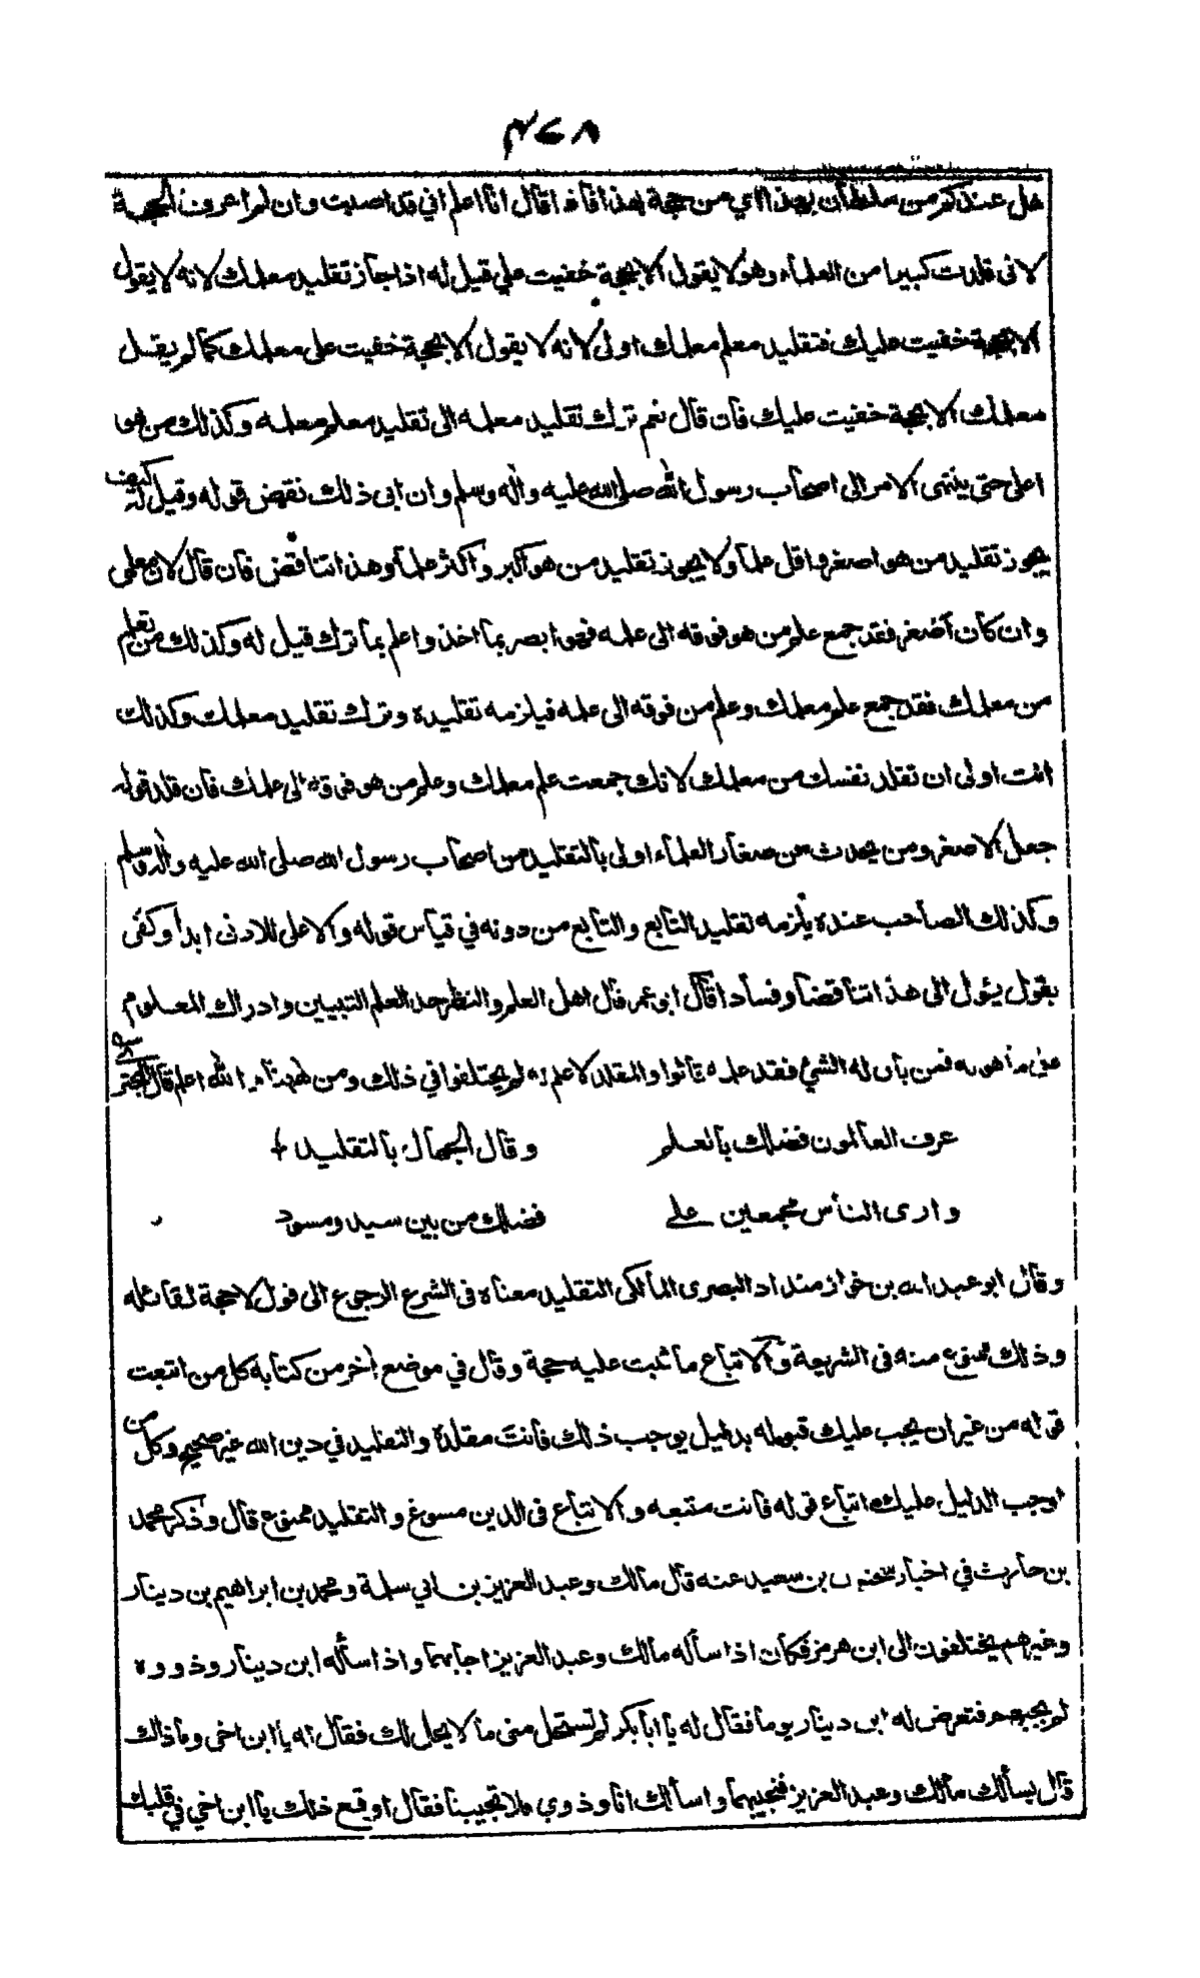 ٣٦٨
هل عندكم من سلطان بهذا اي من حجة بهذا فاذا قال انا اعلم اني قد اصبت وان لم اعرف الحجة
لانى قلدت كبيرا من العلماء وهو لا يقول الا بحجة خفيت علي قيل له اذا جاز تقليد معلمك لانه لا يقول
الا بحجة خفيت عليك فتقليد معلم معلمك اولى لانه لا يقول الا بحجة خفيت على معلمك كما لم يقل
معلمك الا بحجة خفيت عليك فان قال نعم ترك تقليد معلمه الى تقليد معلم معلمه وكذلك من هو
اعلى حتى ينتهى الامر الى اصحاب رسول الله صلى الله عليه واله وسلم وان ابى ذلك نقض قوله وقيل له كيف
يجوز تقليد من هو اصغر واقل علما ولا يجوز تقليد من هو اكبر واكثر علما وهذا تناقض فان قال لان معلمى
وان كان اصغر فقد جمع علم من هو فوقه الى علمه فهو ابصر بما اخذ واعلم بما ترك قيل له وكذلك من تعلم
من معلمك فقد جمع علم معلمك وعلم من فوقه الى علمه فيلزمه تقليده وترك تقليد معلمك وكذلك
انت اولى ان تقلد نفسك من معلمك لانك جمعت علم معلمك وعلم من هو فوقه الى علمك فان قلد قوله
جعل الاصغر ومن يحدث من صغار العلماء اولى بالتقليد من اصحاب رسول الله صلى الله عليه واله وسلم
وكذلك الصاحب عنده يلزمه تقليد التابع والتابع من دونه في قياس قوله والاعلى للادنى ابدا وكفى
بقول يئول الى هذا تناقضا وفسادا قال ابو عمر قال اهل العلم والنظر حد العلم التبيين وادراك المعلوم
على ما هو به فمن بان له الشئ فقد علمه قالوا والمقلد لا علم له لم يختلفوا في ذلك ومن ههنا والله اعلم قال البحترى
عرف العالمون فضلك بالعلم وقال الجهال بالتقليد
وارى الناس مجمعين على فضلك من بين سيد ومسود
وقال ابو عبد الله بن خواز منداد البصرى المالكى التقليد معناه فى الشرع الرجوع الى قول لا حجة لقائله
وذلك ممنوع منه فى الشريعة والاتباع ما ثبت عليه حجة وقال في موضع اخر من كتابه كل من اتبعت
قوله من غير ان يجب عليك قبوله بدليل يوجب ذلك فانت مقلده والتقليد في دين الله غير صحيح وكل من
اوجب الدليل عليك اتباع قوله فانت متبعه والاتباع فى الدين مسوغ والتقليد ممنوع قال وذكر محمد
بن حارث في اخبار سحنون بن سعيد عنه قال مالك وعبد العزيز بن ابي سلمة ومحمد بن ابراهيم بن دينار
وغيرهم يختلفون الى ابن هرمز فكان اذا سأله مالك وعبد العزيز اجابهما واذا سأله ابن دينار وذووه
لم يجبهم فتعرض له ابن دينار يوما فقال له يا ابا بكر لم تستحل منى ما لا يحل لك فقال له يا ابن اخى وما ذاك
قال يسألك مالك وعبد العزيز فتجيبهما واسألك انا وذوي فلا تجيبنا فقال اوقع ذلك يا ابن اخي في قلبك